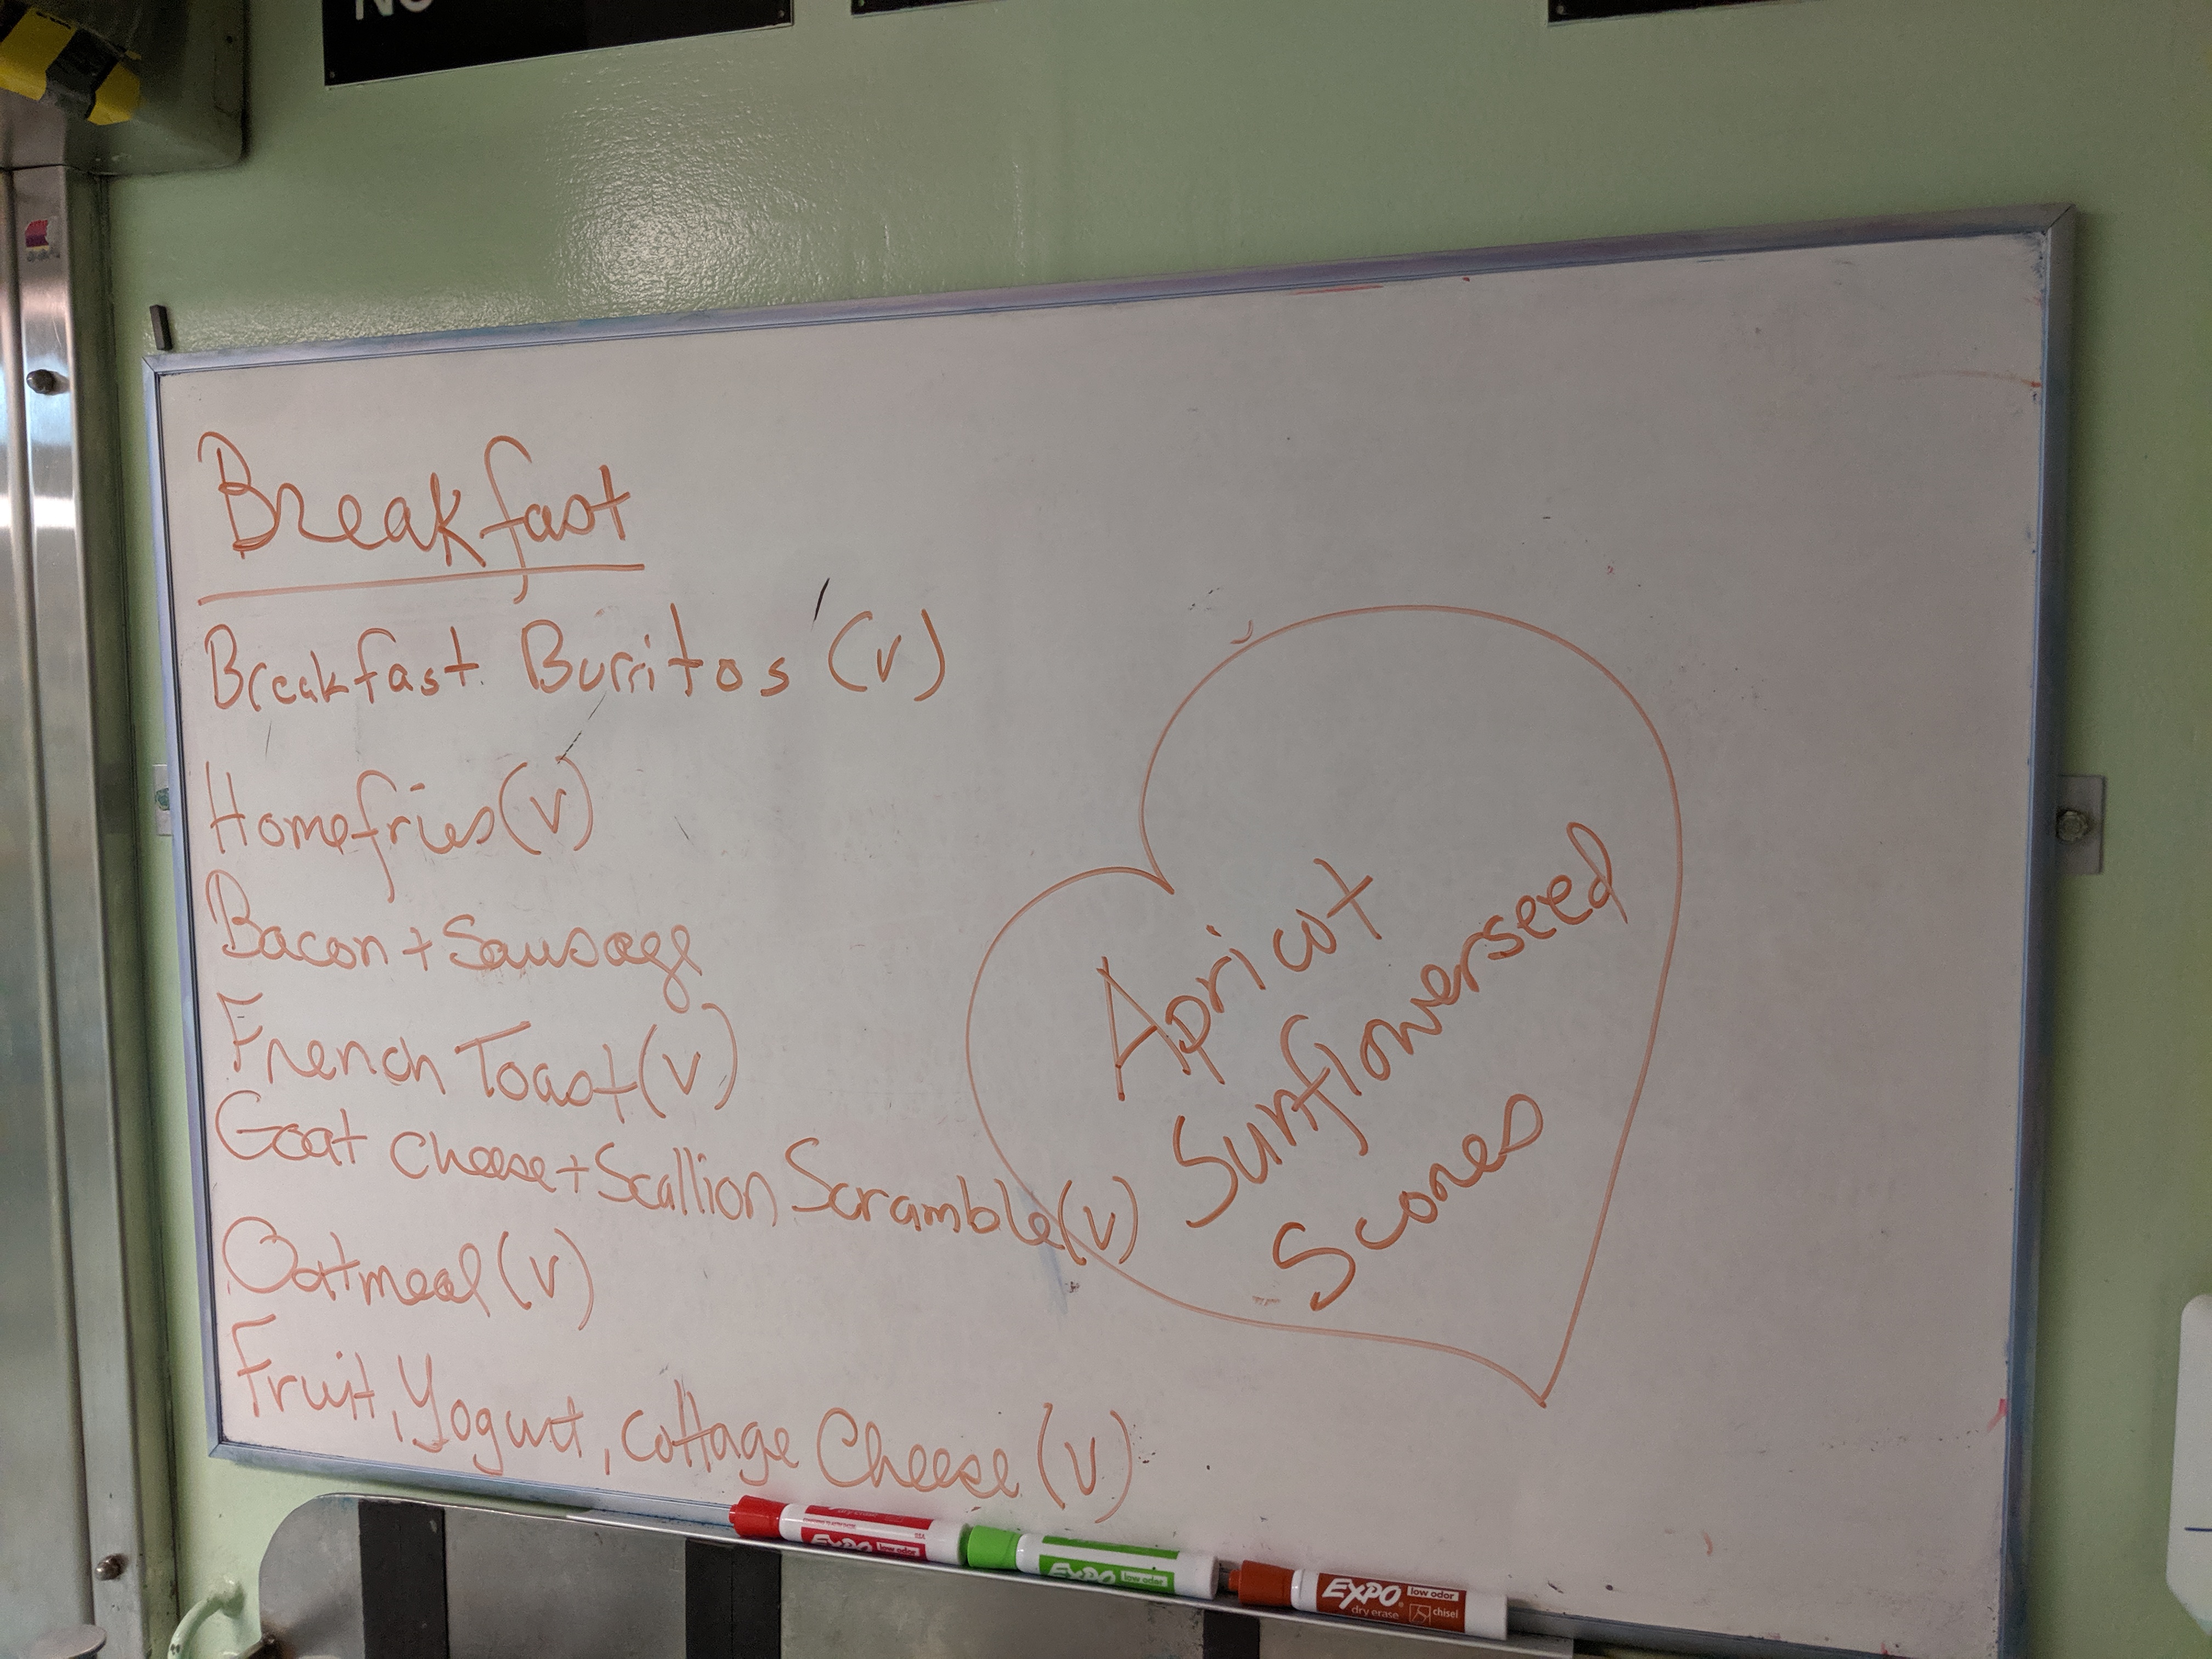 NO
Breakfast
Breakfast Burritos (v)
Homefries (v)
Bacon + Sausage
French Toast (v)
Goat Cheese + Scallion Scramble (v)
Oatmeal (v)
Fruit, Yogurt, Cottage Cheese (v)
Apricot
Sunflowerseed
Scones
EXPO low odor
EXPO low odor
EXPO low odor
dry erase chisel